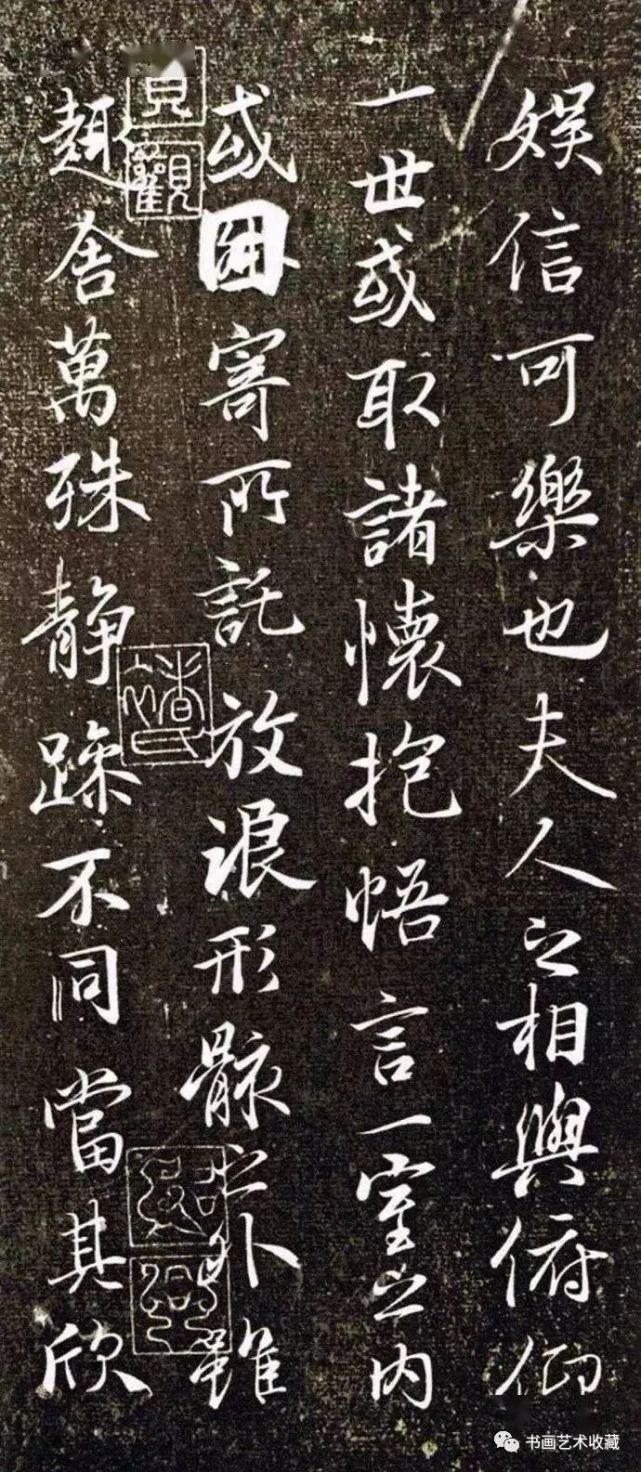 娱信可樂也夫人之相與俯仰
一世或取諸懷抱悟言一室之内
或因寄所託放浪形骸之外雖
趣舍萬殊静躁不同當其欣
书画艺术收藏